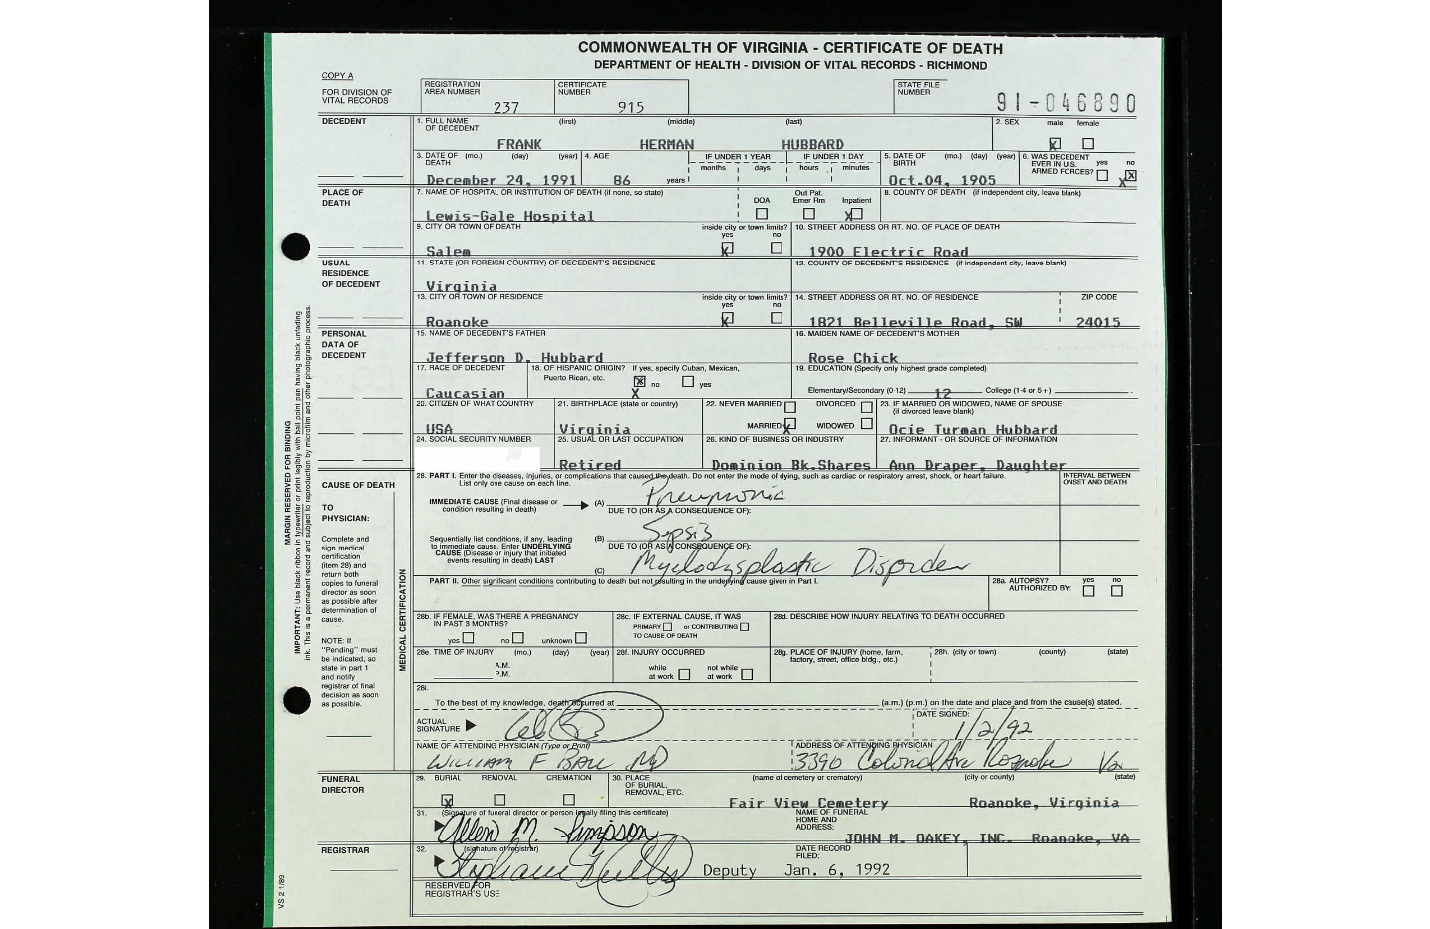 COMMONWEALTH OF VIRGINIA - CERTIFICATE OF DEATH
DEPARTMENT OF HEALTH - DIVISION OF VITAL RECORDS - RICHMOND
COPY A
FOR DIVISION OF VITAL RECORDS
REGISTRATION AREA NUMBER 237
CERTIFICATE NUMBER 915
STATE FILE NUMBER 91-046890
DECEDENT
1. FULL NAME OF DECEDENT (first) (middle) (last)
FRANK HERMAN HUBBARD
2. SEX male female
X
3. DATE OF DEATH (mo.) (day) (year)
December 24, 1991
4. AGE 86 years
IF UNDER 1 YEAR months days
IF UNDER 1 DAY hours minutes
5. DATE OF BIRTH (mo.) (day) (year)
Oct.04, 1905
6. WAS DECEDENT EVER IN U.S. ARMED FORCES? yes no
X
PLACE OF DEATH
7. NAME OF HOSPITAL OR INSTITUTION OF DEATH (if none, so state)
Lewis-Gale Hospital
DOA Out Pat. Emer Rm Inpatient
X
8. COUNTY OF DEATH (if independent city, leave blank)
9. CITY OR TOWN OF DEATH
Salem
inside city or town limits? yes no
X
10. STREET ADDRESS OR RT. NO. OF PLACE OF DEATH
1900 Electric Road
USUAL RESIDENCE OF DECEDENT
11. STATE (OR FOREIGN COUNTRY) OF DECEDENT'S RESIDENCE
Virginia
12. COUNTY OF DECEDENT'S RESIDENCE (if independent city, leave blank)
13. CITY OR TOWN OF RESIDENCE
Roanoke
inside city or town limits? yes no
X
14. STREET ADDRESS OR RT. NO. OF RESIDENCE ZIP CODE
1821 Belleville Road, SW 24015
PERSONAL DATA OF DECEDENT
15. NAME OF DECEDENT'S FATHER
Jefferson D. Hubbard
16. MAIDEN NAME OF DECEDENT'S MOTHER
Rose Chick
17. RACE OF DECEDENT
Caucasian
18. OF HISPANIC ORIGIN? If yes, specify Cuban, Mexican, Puerto Rican, etc.
no yes
X
19. EDUCATION (Specify only highest grade completed)
Elementary/Secondary (0-12) 12 College (1-4 or 5+)
20. CITIZEN OF WHAT COUNTRY
USA
21. BIRTHPLACE (state or country)
Virginia
22. NEVER MARRIED DIVORCED
MARRIED X WIDOWED
23. IF MARRIED OR WIDOWED, NAME OF SPOUSE (if divorced leave blank)
Ocie Turman Hubbard
24. SOCIAL SECURITY NUMBER
25. USUAL OR LAST OCCUPATION
Retired
26. KIND OF BUSINESS OR INDUSTRY
Dominion Bk.Shares
27. INFORMANT - OR SOURCE OF INFORMATION
Ann Draper, Daughter
MARGIN RESERVED FOR BINDING
IMPORTANT: Use black ribbon in typewriter or print legibly with ball point pen having black unfading
ink. This is a permanent record and subject to reproduction by microfilm and other photographic process.
CAUSE OF DEATH
TO PHYSICIAN:
Complete and
sign medical
certification
(item 28) and
return both
copies to funeral
director as soon
as possible after
determination of
cause.
NOTE: If
"Pending" must
be indicated, so
state in part 1
and notify
registrar of final
decision as soon
as possible.
MEDICAL CERTIFICATION
28. PART I. Enter the diseases, injuries, or complications that caused the death. Do not enter the mode of dying, such as cardiac or respiratory arrest, shock, or heart failure.
List only one cause on each line.
INTERVAL BETWEEN ONSET AND DEATH
IMMEDIATE CAUSE (Final disease or condition resulting in death)
(A) Pneumonia
DUE TO (OR AS A CONSEQUENCE OF):
Sequentially list conditions, if any, leading to immediate cause. Enter UNDERLYING CAUSE (Disease or injury that initiated events resulting in death) LAST
(B) Sepsis
DUE TO (OR AS A CONSEQUENCE OF):
(C) Myelodysplastic Disorder
PART II. Other significant conditions contributing to death but not resulting in the underlying cause given in Part I.
28a. AUTOPSY? AUTHORIZED BY: yes no
28b. IF FEMALE, WAS THERE A PREGNANCY IN PAST 3 MONTHS?
yes no unknown
28c. IF EXTERNAL CAUSE, IT WAS
PRIMARY or CONTRIBUTING
TO CAUSE OF DEATH
28d. DESCRIBE HOW INJURY RELATING TO DEATH OCCURRED
28e. TIME OF INJURY (mo.) (day) (year)
A.M.
P.M.
28f. INJURY OCCURRED
while at work not while at work
28g. PLACE OF INJURY (home, farm, factory, street, office bldg., etc.)
28h. (city or town) (county) (state)
28i.
To the best of my knowledge, death occurred at (a.m.) (p.m.) on the date and place and from the cause(s) stated.
ACTUAL SIGNATURE
DATE SIGNED: 1/2/92
NAME OF ATTENDING PHYSICIAN (Type or Print)
WILLIAM F BALL MD
ADDRESS OF ATTENDING PHYSICIAN
3390 Colonial Ave Roanoke Va
FUNERAL DIRECTOR
29. BURIAL REMOVAL CREMATION
X
30. PLACE OF BURIAL, REMOVAL, ETC. (name of cemetery or crematory) (city or county) (state)
Fair View Cemetery Roanoke, Virginia
31. (Signature of funeral director or person legally filing this certificate)
Allen M. Simpson
NAME OF FUNERAL HOME AND ADDRESS:
JOHN M. OAKEY, INC. Roanoke, VA
REGISTRAR
32. (signature of registrar)
Deputy
DATE RECORD FILED:
Jan. 6, 1992
RESERVED FOR REGISTRAR'S USE
VS 2 1/89